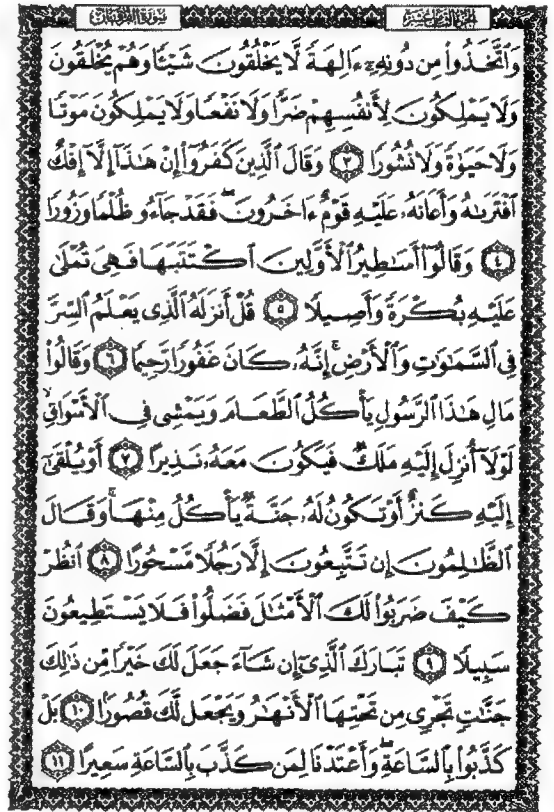 الجزء الثامن عشر سورة الفرقان
وَٱتَّخَذُوا۟ مِن دُونِهِۦٓ ءَالِهَةً لَّا يَخْلُقُونَ شَيْـًٔا وَهُمْ يُخْلَقُونَ
وَلَا يَمْلِكُونَ لِأَنفُسِهِمْ ضَرًّا وَلَا نَفْعًا وَلَا يَمْلِكُونَ مَوْتًا
وَلَا حَيَوٰةً وَلَا نُشُورًا ٣ وَقَالَ ٱلَّذِينَ كَفَرُوٓا۟ إِنْ هَـٰذَآ إِلَّآ إِفْكٌ
ٱفْتَرَىٰهُ وَأَعَانَهُۥ عَلَيْهِ قَوْمٌ ءَاخَرُونَ ۖ فَقَدْ جَآءُو ظُلْمًا وَزُورًا
٤ وَقَالُوٓا۟ أَسَـٰطِيرُ ٱلْأَوَّلِينَ ٱكْتَتَبَهَا فَهِىَ تُمْلَىٰ
عَلَيْهِ بُكْرَةً وَأَصِيلًا ٥ قُلْ أَنزَلَهُ ٱلَّذِى يَعْلَمُ ٱلسِّرَّ
فِى ٱلسَّمَـٰوَٰتِ وَٱلْأَرْضِ ۚ إِنَّهُۥ كَانَ غَفُورًا رَّحِيمًا ٦ وَقَالُوا۟
مَالِ هَـٰذَا ٱلرَّسُولِ يَأْكُلُ ٱلطَّعَامَ وَيَمْشِى فِى ٱلْأَسْوَاقِ ۙ
لَوْلَآ أُنزِلَ إِلَيْهِ مَلَكٌ فَيَكُونَ مَعَهُۥ نَذِيرًا ٧ أَوْ يُلْقَىٰٓ
إِلَيْهِ كَنزٌ أَوْ تَكُونُ لَهُۥ جَنَّةٌ يَأْكُلُ مِنْهَا ۚ وَقَالَ
ٱلظَّـٰلِمُونَ إِن تَتَّبِعُونَ إِلَّا رَجُلًا مَّسْحُورًا ٨ ٱنظُرْ
كَيْفَ ضَرَبُوا۟ لَكَ ٱلْأَمْثَـٰلَ فَضَلُّوا۟ فَلَا يَسْتَطِيعُونَ
سَبِيلًا ٩ تَبَارَكَ ٱلَّذِىٓ إِن شَآءَ جَعَلَ لَكَ خَيْرًا مِّن ذَٰلِكَ
جَنَّـٰتٍ تَجْرِى مِن تَحْتِهَا ٱلْأَنْهَـٰرُ وَيَجْعَل لَّكَ قُصُورًۢا ١٠ بَلْ
كَذَّبُوا۟ بِٱلسَّاعَةِ ۖ وَأَعْتَدْنَا لِمَن كَذَّبَ بِٱلسَّاعَةِ سَعِيرًا ١١